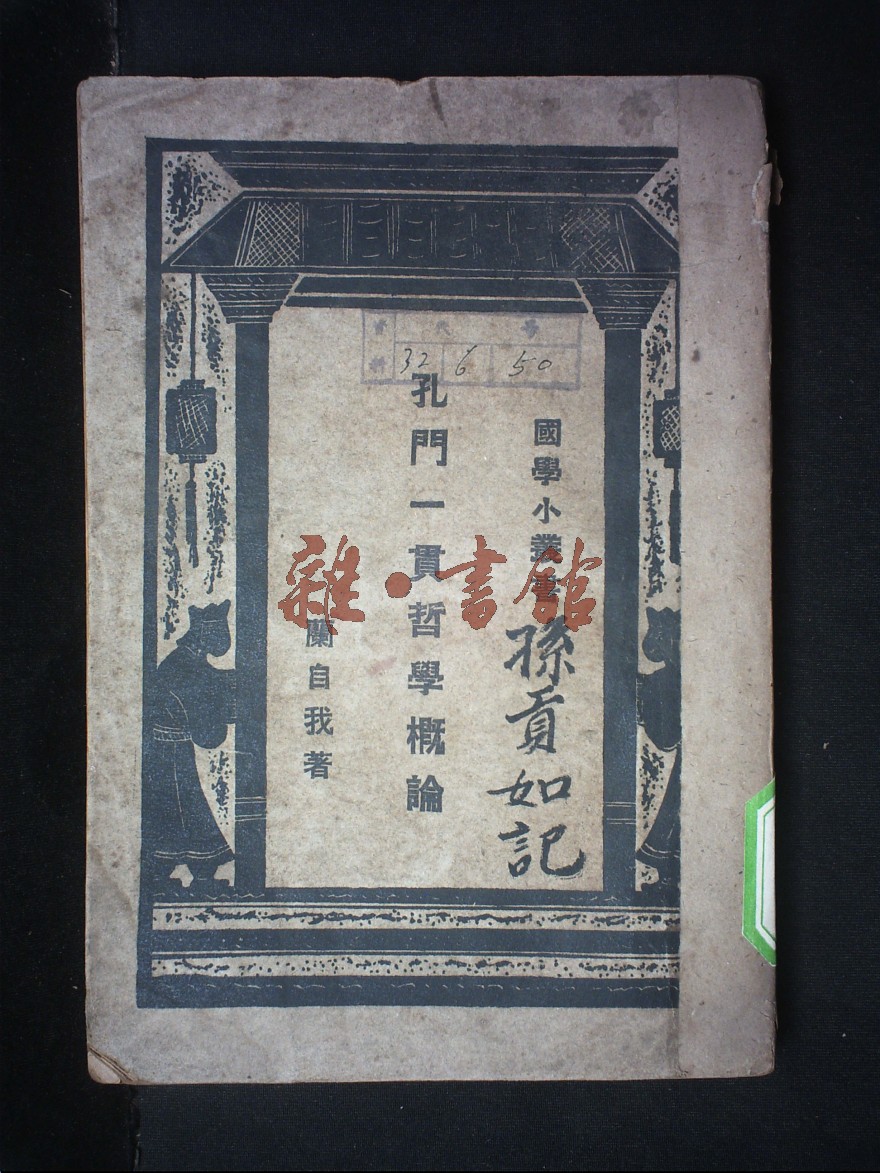 32 6 50
國學小叢書
孫貢如記
孔門一貫哲學概論
蘭自我著
雜·書館